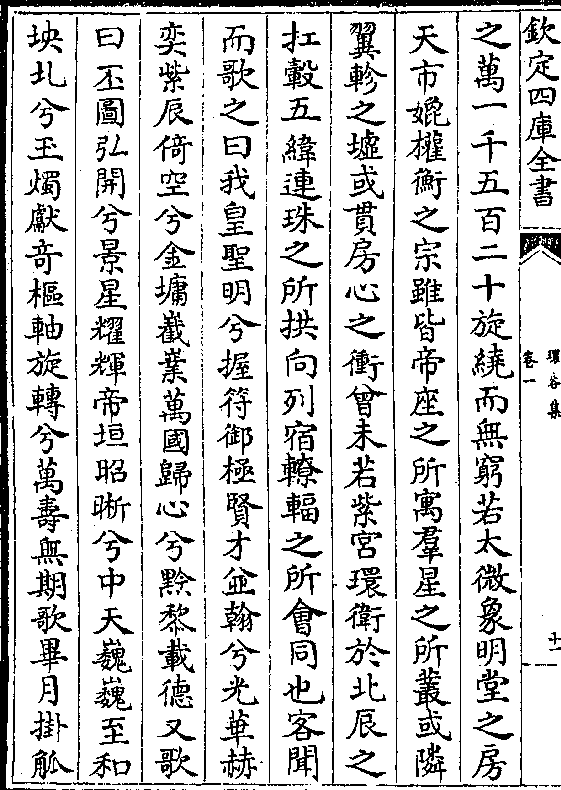 欽定四庫全書
卷一
十一
之萬一千五百二十旋繞而無窮若太微象明堂之房
天市媲權衡之宗雖皆帝座之所寓羣星之所叢或隣
翼軫之墟或貫房心之衝曾未若紫宮環衛於北辰之
扛轂五緯連珠之所拱向列宿轑輻之所會同也客聞
而歌之曰我皇聖明兮握符御極賢才並翰兮光華赫
奕紫辰倚空兮金墉嶻業萬國歸心兮黔黎載德又歌
曰丕圖弘開兮景星耀輝帝垣昭晰兮中天巍巍至和
坱圠兮玉燭獻竒樞軸旋轉兮萬壽無期歌畢月掛觚